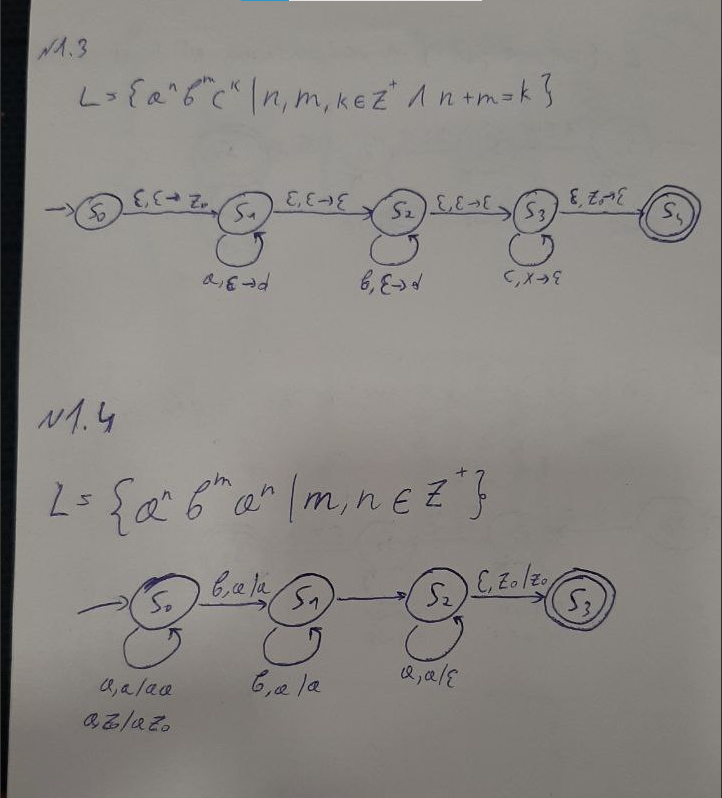 N1.3
L = {aⁿ bᵐ cᵏ | n, m, k ∈ Z⁺ ∧ n + m = k}
S₀ ε, ε → Z₀ S₁ ε, ε → ε S₂ ε, ε → ε S₃ ε, Z₀ → ε S₄
a, ε → d b, ε → d c, x → ε
N1.4
L = {aⁿ bᵐ aⁿ | m, n ∈ Z⁺}
S₀ b, a/a S₁ S₂ ε, Z₀/Z₀ S₃
a, a/aa b, a/a a, a/ε
a, Z₀/aZ₀